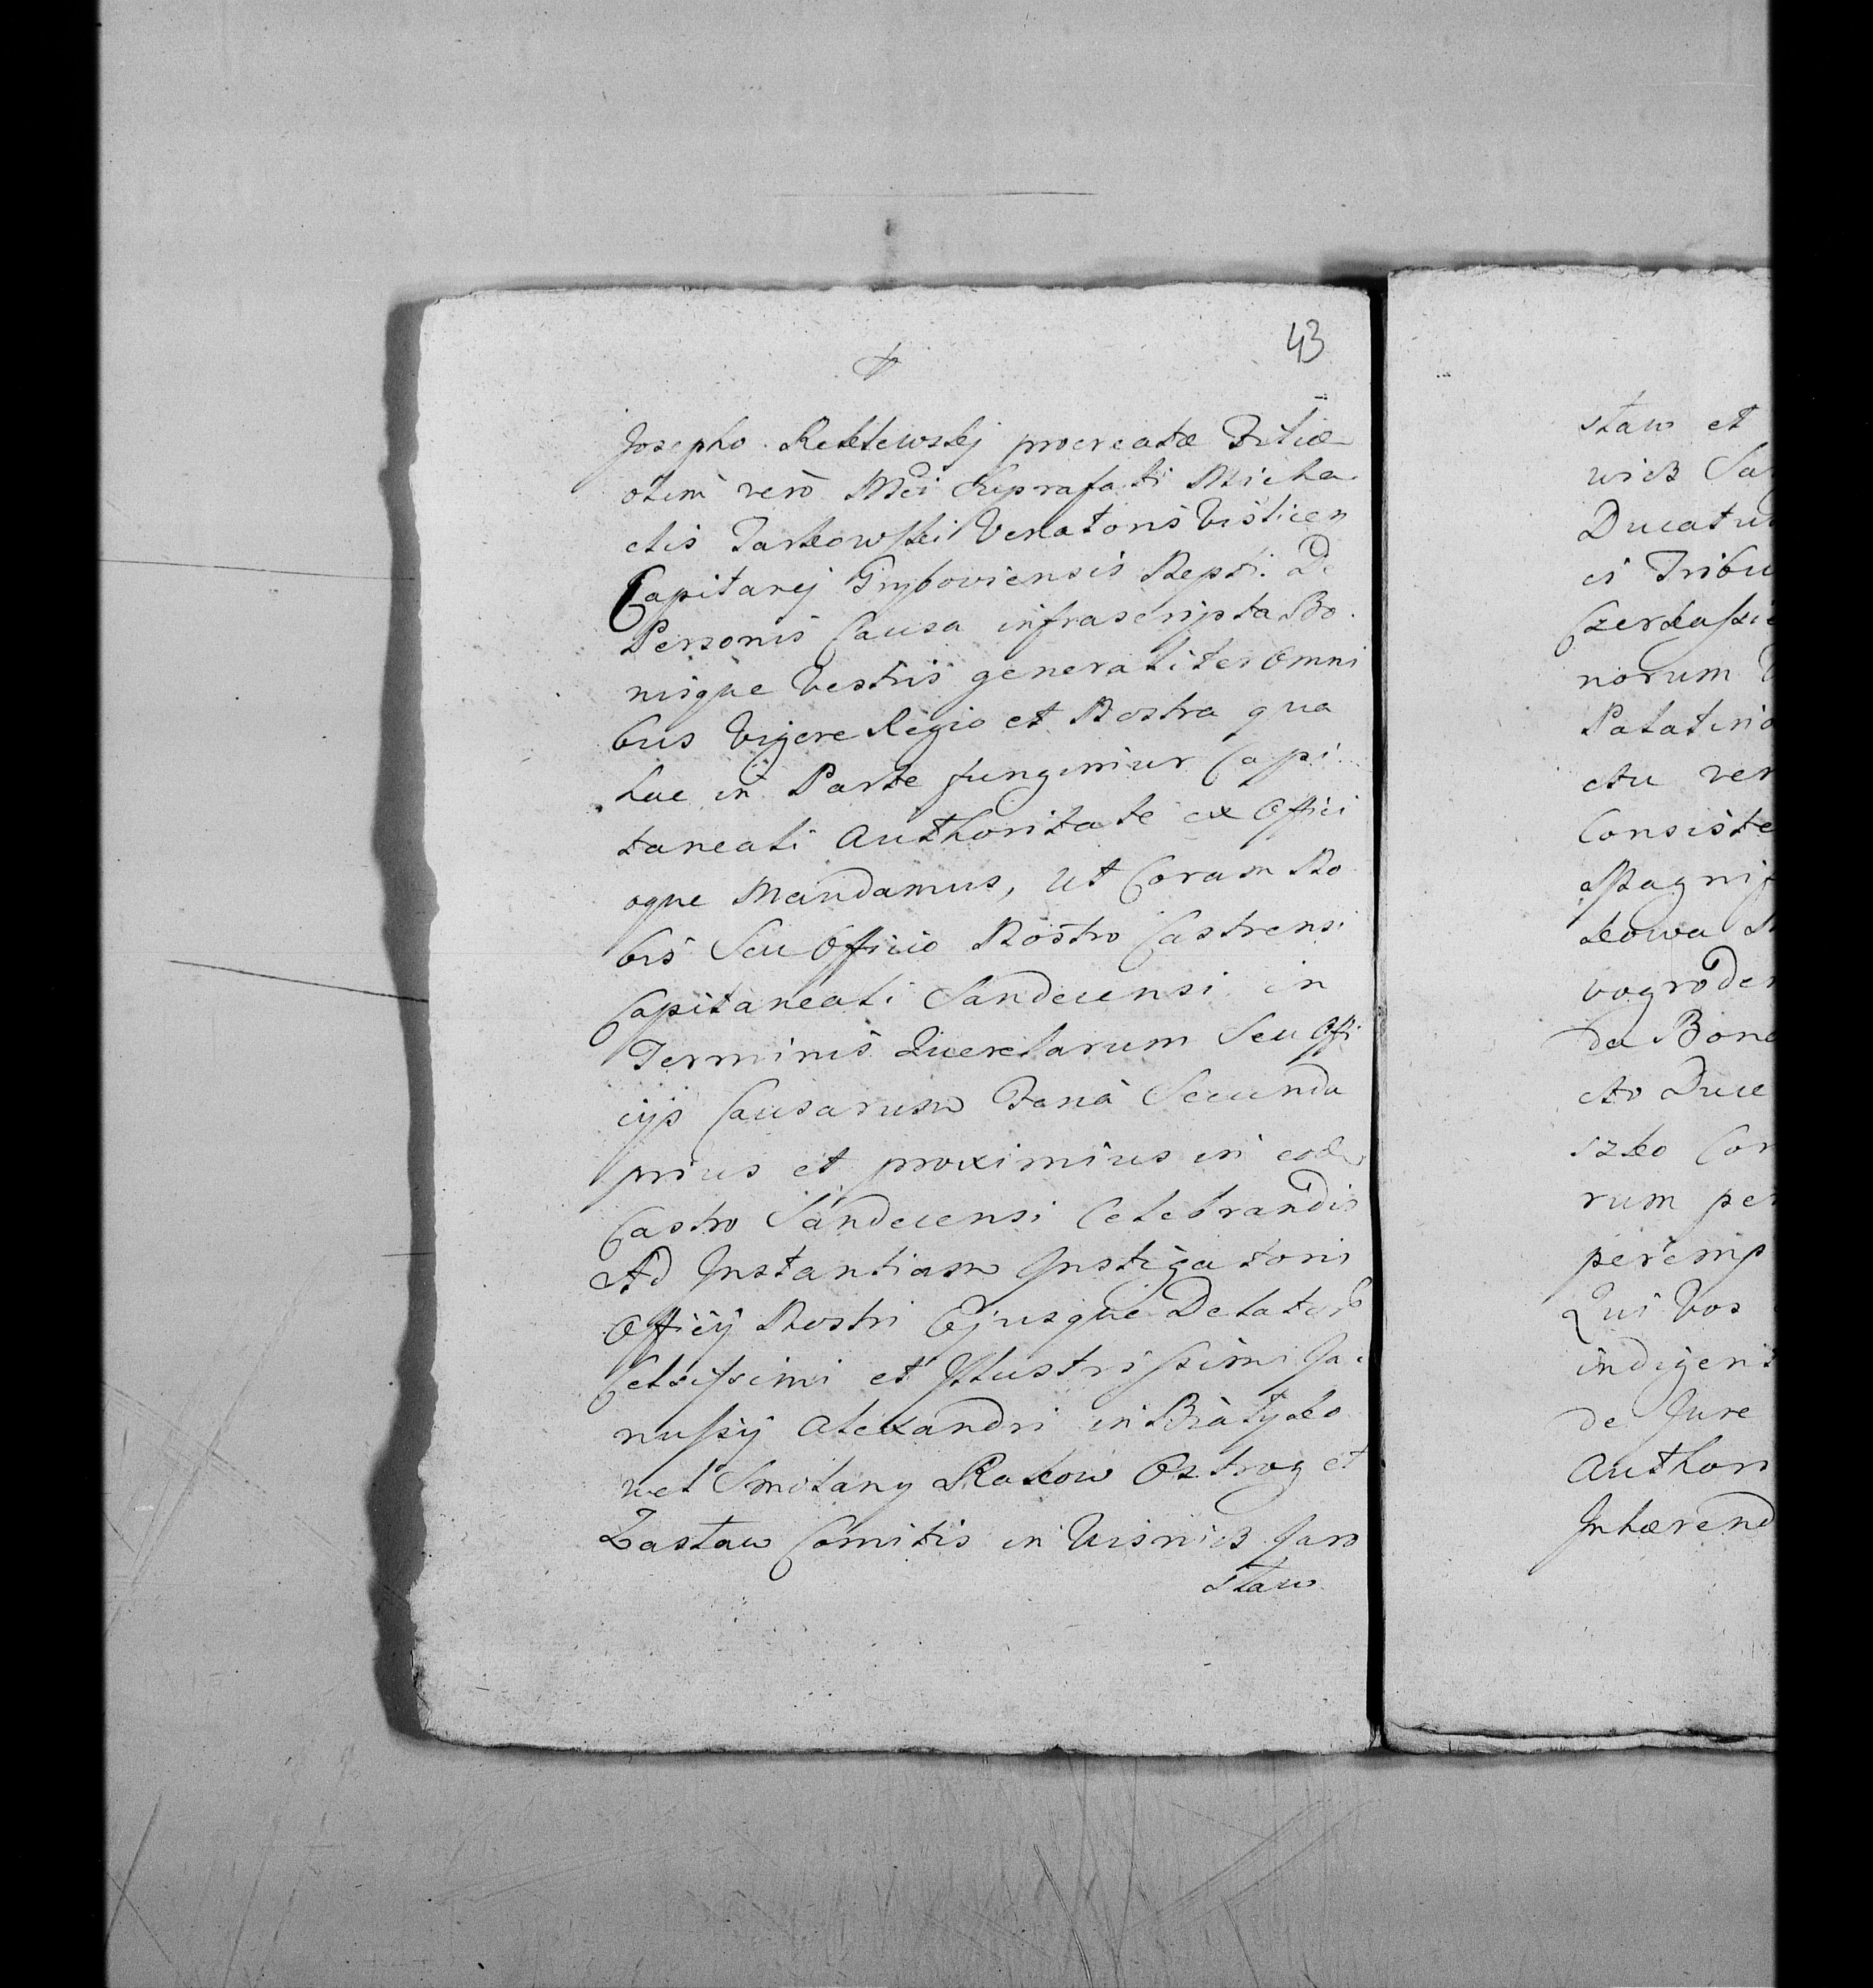 43
Josepho Reklewskj procreatæ Filiæ
olim vero Mci Suprafati Micha
elis Tarkowski Venatoris Vislicen
Capitanej Gryboviensis Nepti. De
Personis Causa infrascripta Bo
nisque Vestris generaliter Omni
bus Vigere Regio et Nostra qua
hac in Parte fungimur Capi
taneali Authoritate ex Offici
oque Mandamus, ut Coram No
bis Seu Officio Nostro Castrensi
Capitaneali Sandecensi in
Terminis Querelarum Seu Offi
cijs Causarum Feria Secunda
prius et proximius in eodem
Castro Sandecensi Celebrandis
Ad Instantiam Instigatoris
Officij Nostri Ejusque Delatoris
Celsissimi et Illustrissimi Ja
nussij Alexandri in Biały Ko
wel Smolany Rakow Ostrog et
Zasław Comitis in Wisnicz Jaro
sław
sław et
wicz
Ducatu
is Tribu
norum
Palatino
ctu ver
Consiste
Magnif
kowa
vogroden
da Bone
cto Duce
szko Cor
rum per
peremp
Qui Vos
indigeni
de Jure
Authori
Inhærend